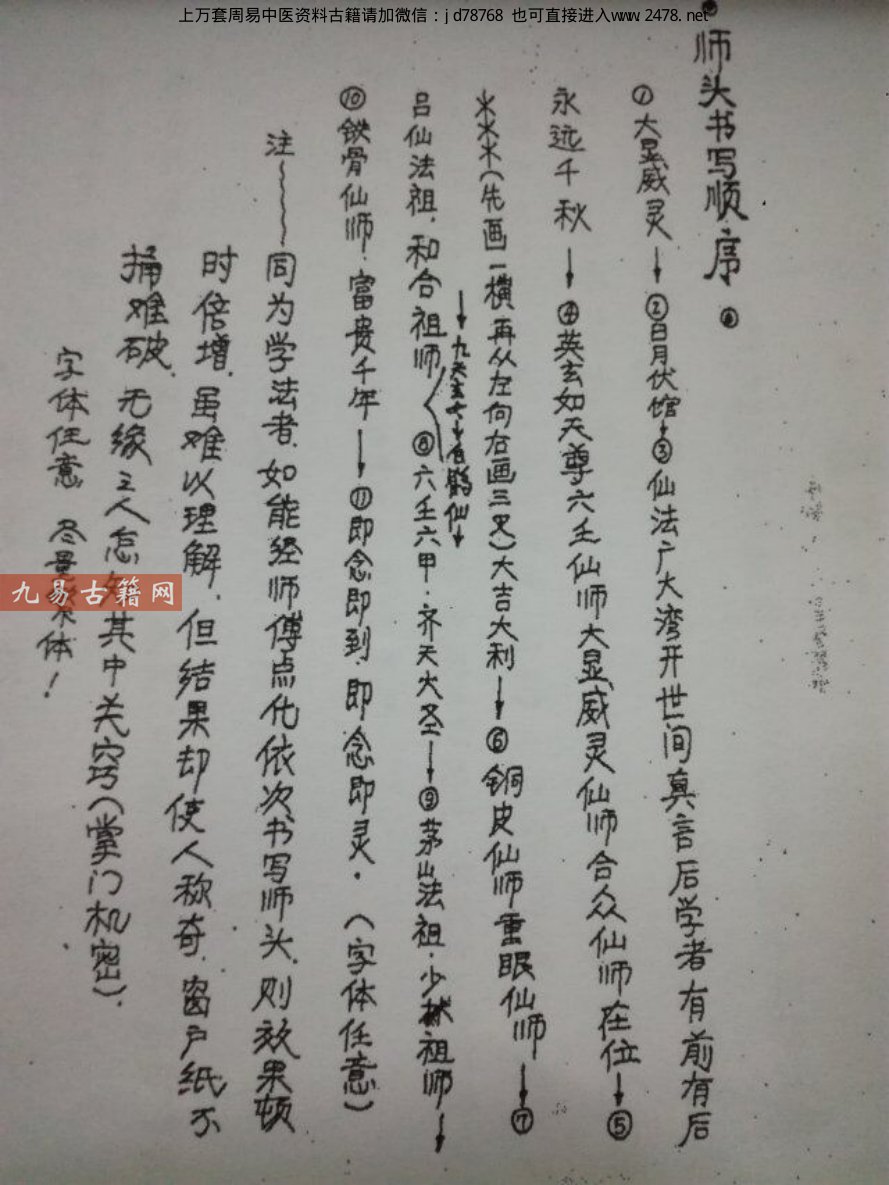 上万套周易中医资料古籍请加微信：jd78768 也可直接进入www.2478.net
师头书写顺序
①大显威灵→②日月伏馆→③仙法广大湾开世间真言后学者有前有后
永远千秋→④英玄如天尊六壬仙师大显威灵仙师合众仙师在位→⑤
(先画一横再从左向右画三叉)大吉大利→⑥铜皮仙师重眼仙师→⑦
→九天玄女→白鹤仙→
吕仙法祖.和合祖师⑧六壬六甲.齐天大圣→⑨茅山法祖.少林祖师→
⑩铁骨仙师.富贵千年→⑪即念即到.即念即灵.(字体任意)
注 同为学法者.如能经师傅点化依次书写师头.则效果顿
时倍增.虽难以理解.但结果却使人称奇.窗户纸不
捅难破.无缘之人怎知其中关窍(掌门机密).
字体任意 尽量繁体!
九易古籍网